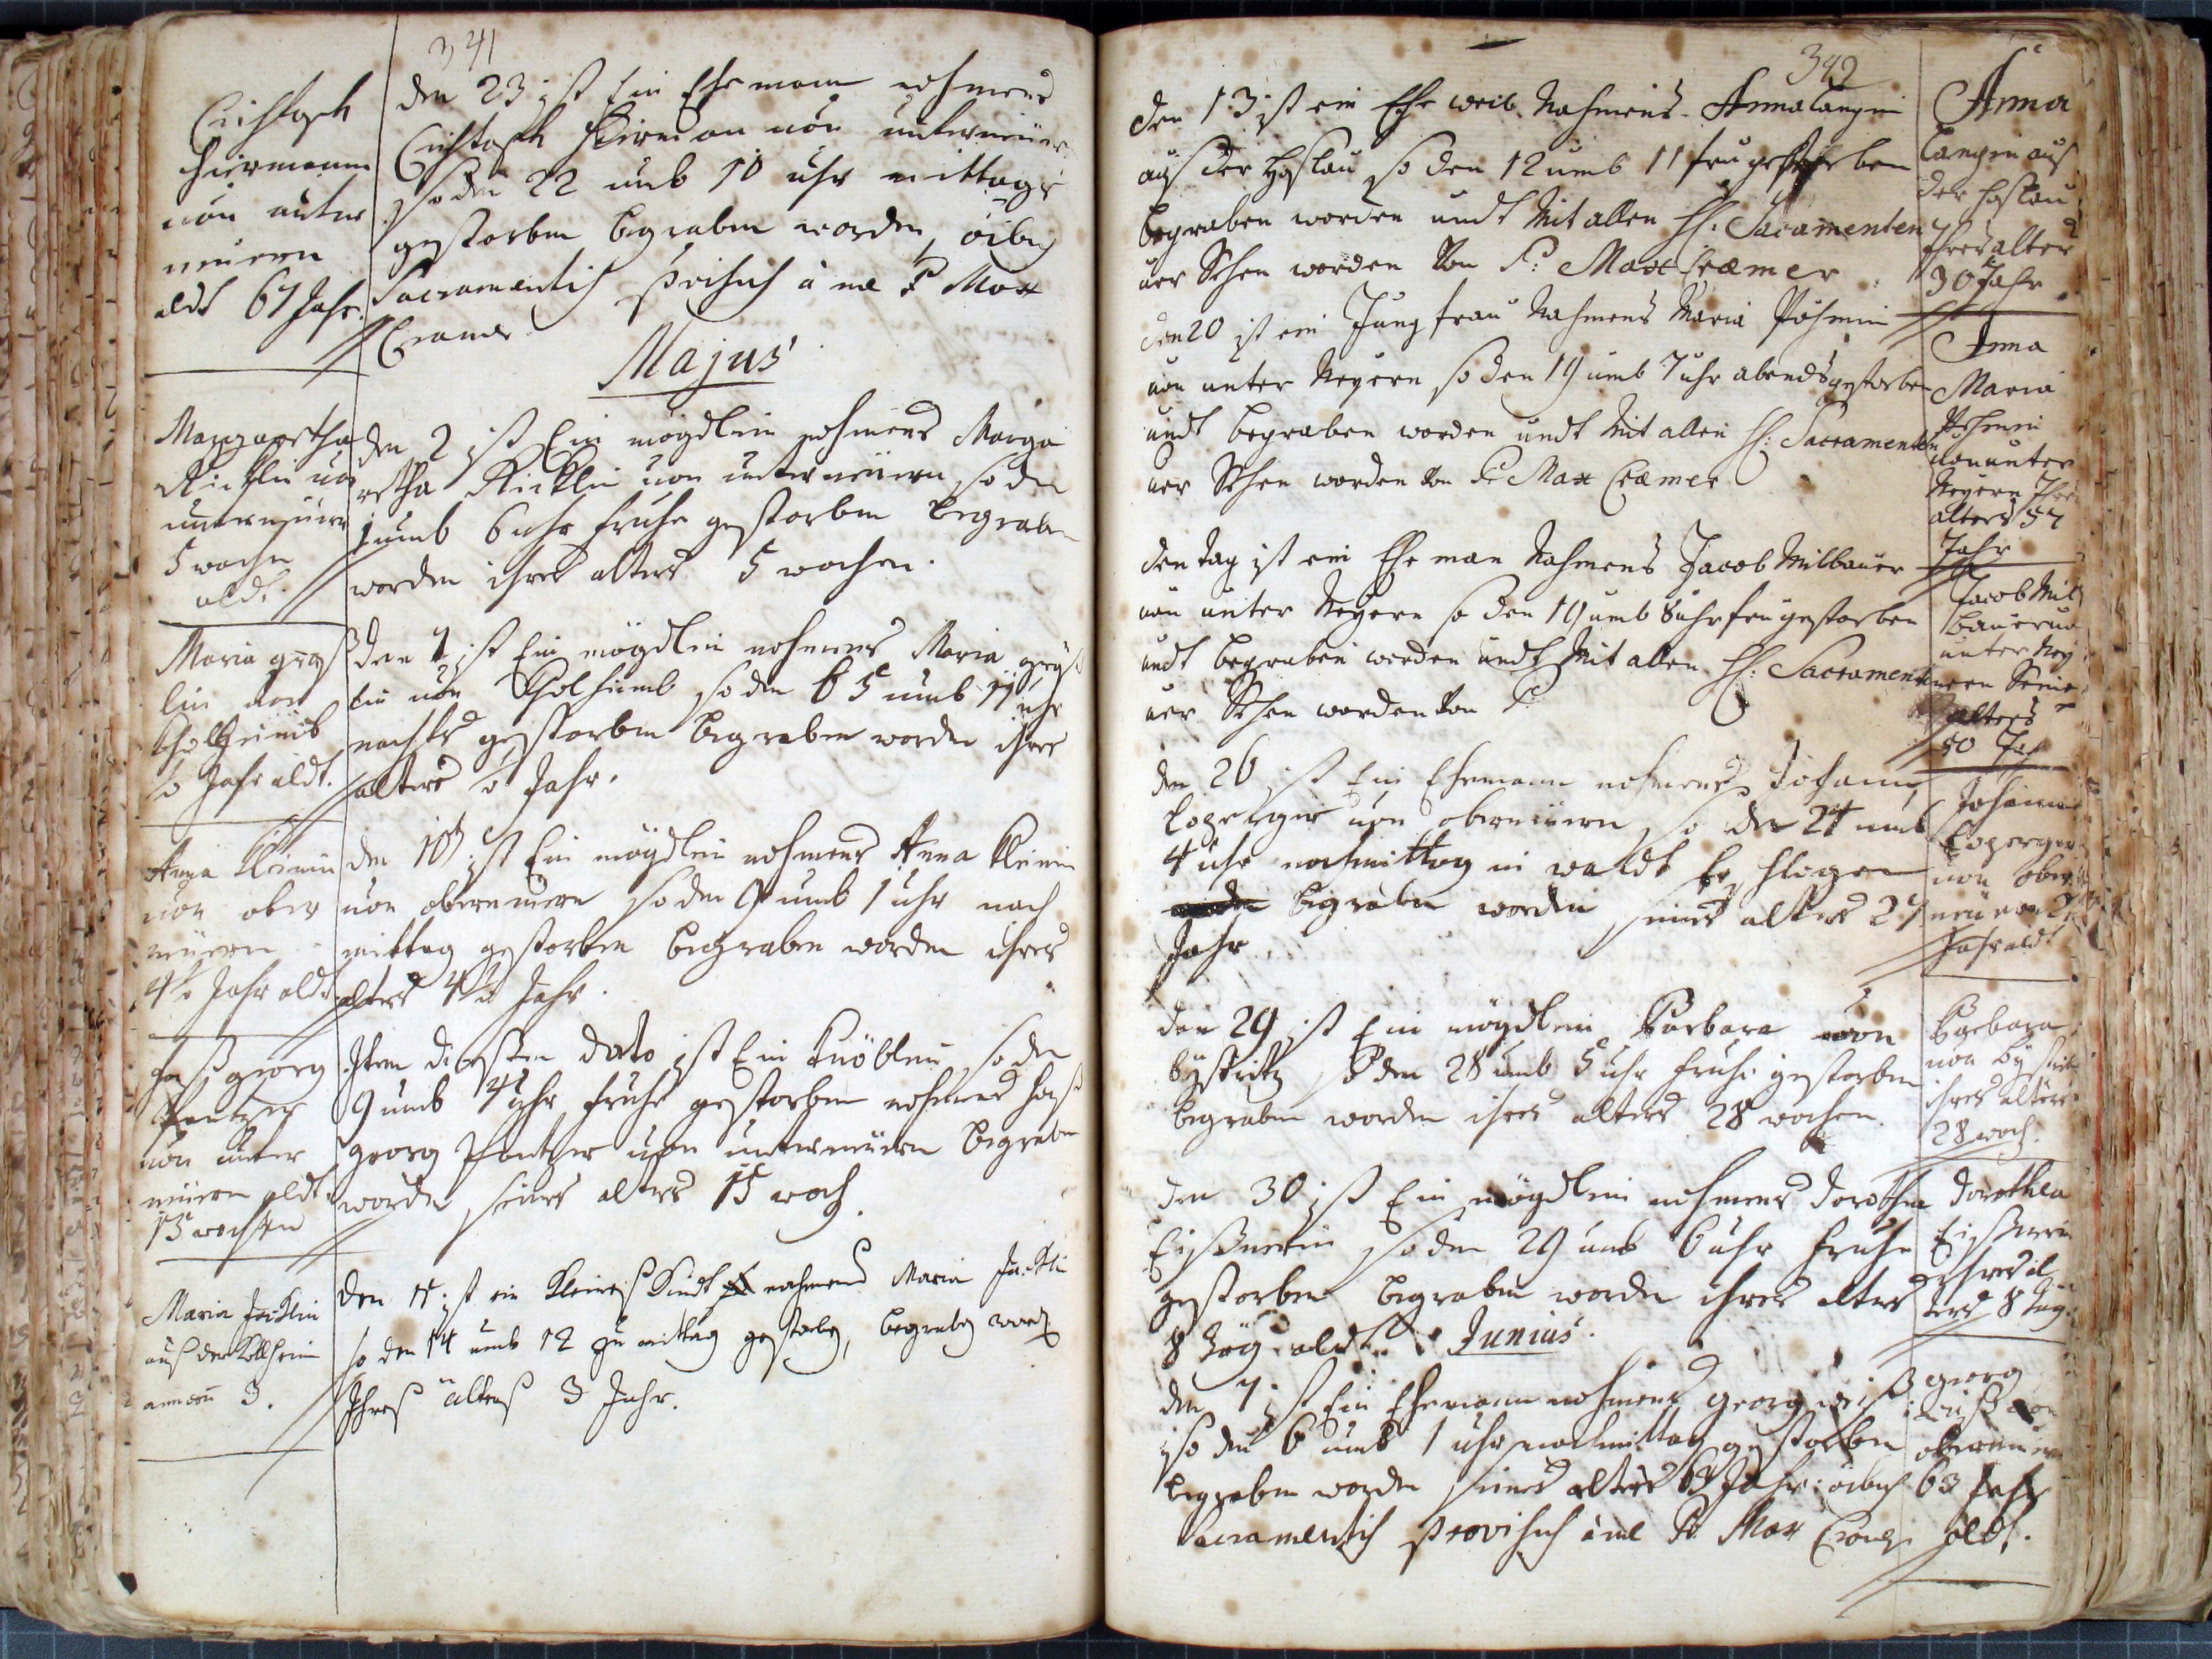 341
Christoph
Hiermann
von unter
neüern
aldt 67 Jahr.
den 23 ist Ein Ehemann nohmens
Christoph Hirman von unterneüer
so den 22 umb 10 uhr mittags
gestorben begraben worden, oibus
Sacramentis provisus à me P Max
Cramer
Majus
Margaretha
Ricklin von
unterneüern
5 wochn
aldt.
den 2 ist Ein mögdlein nohmens Marga
retha Ricklin von unterneüern so den
1 umb 6 uhr fruhe gestorben begraben
worden ihres alters 5 wochen.
Maria
lin von
Jahr aldt.
den 7 ist Ein mögdlein nohmens Maria
lin von so den 5 umb 11 uhr
nachts gestorben begraben worden ihres
alters Jahr.
Anna Kleinin
von ober
neüern
4 Jahr aldt
den 10 ist Ein mögdlein nohmens Anna Kleinin
von oberneüern so den 9 umb 1 uhr nach
mittag gestorben begraben worden ihres
alters 4 Jahr.
Hanß georg
von unter
neüern aldt
15 wochen
Item diesen dato ist Ein Knöblein so den
9 umb 4 uhr fruhe gestorben nohmens Hanß
georg von unterneüern begraben
worden seines alters 15 woch.
Maria Jacklin
auß der
annorum 3.
Den 15 ist ein Kleines Kindt nahmens Maria Jacklin
so den 14 umb 12 zu mittag gestorben, begraben word.
Ihres alters 3 Jahr.
342
den 13 ist ein Ehe weib Nahmens Anna Langin
auß der Hoslau so den 12 umb 11 fru gestorben
begraben worden undt Mit allen HH: Sacramenten
ver Sehen worden Von P: Max Cræmer
Anna
Langin auß
der Hoslau
Ihres alters
30 Jahr
den 20 ist ein Jungfrau Nahmens Maria
von unter Neyern so den 19 umb 7 uhr abends gestorben
undt begraben worden undt Mit allen HH: Sacramenten
ver Sehen worden Von P: Max Cræmer
Anna
Maria
von unter
Neyern Ihres
alters 57
Jahr
den tag ist ein Ehe man Nahmens Jacob Milbauer
von unter Neyern so den 19 umb 8 uhr fru gestorben
undt begraben worden undt Mit allen HH: Sacramenten
ver Sehen worden Von P:
Jacob Mil
bauer von
unter Ney
ern Seines
alters
50 Jahr
den 26 ist Ein Ehemann nohmens Johann
von oberneüern so den 24 umb
4 uhr nachmittag in waldt Er schlagen
begraben worden seines alters 27
Jahr.
Johann
von ober
neüern 27
Jahr aldt
den 29 ist Ein mögdlein Barbara von
bystritz so den 28 umb 5 uhr fruhe gestorben
begraben worden ihres alters 28 wochen.
Barbara
von bystritz
ihres alters
28 woch.
den 30 ist Ein mögdlein nohmens Dorothea
Eißnerin so den 29 umb 6 uhr fruhe
gestorben begraben worden ihres alters
8 tög aldt.
Dorothea
Eißnerin
ihres al
ters 8 tag.
Junius
den 7 ist Ein Ehemann nohmens georg weiß
so den 6 umb 1 uhr nachmittag gestorben
begraben worden seines alters 63 Jahr: oibus
Sacramentis provisus à me P. Max Cramer
georg
weiß von
oberneüern
63 Jahr
aldt.